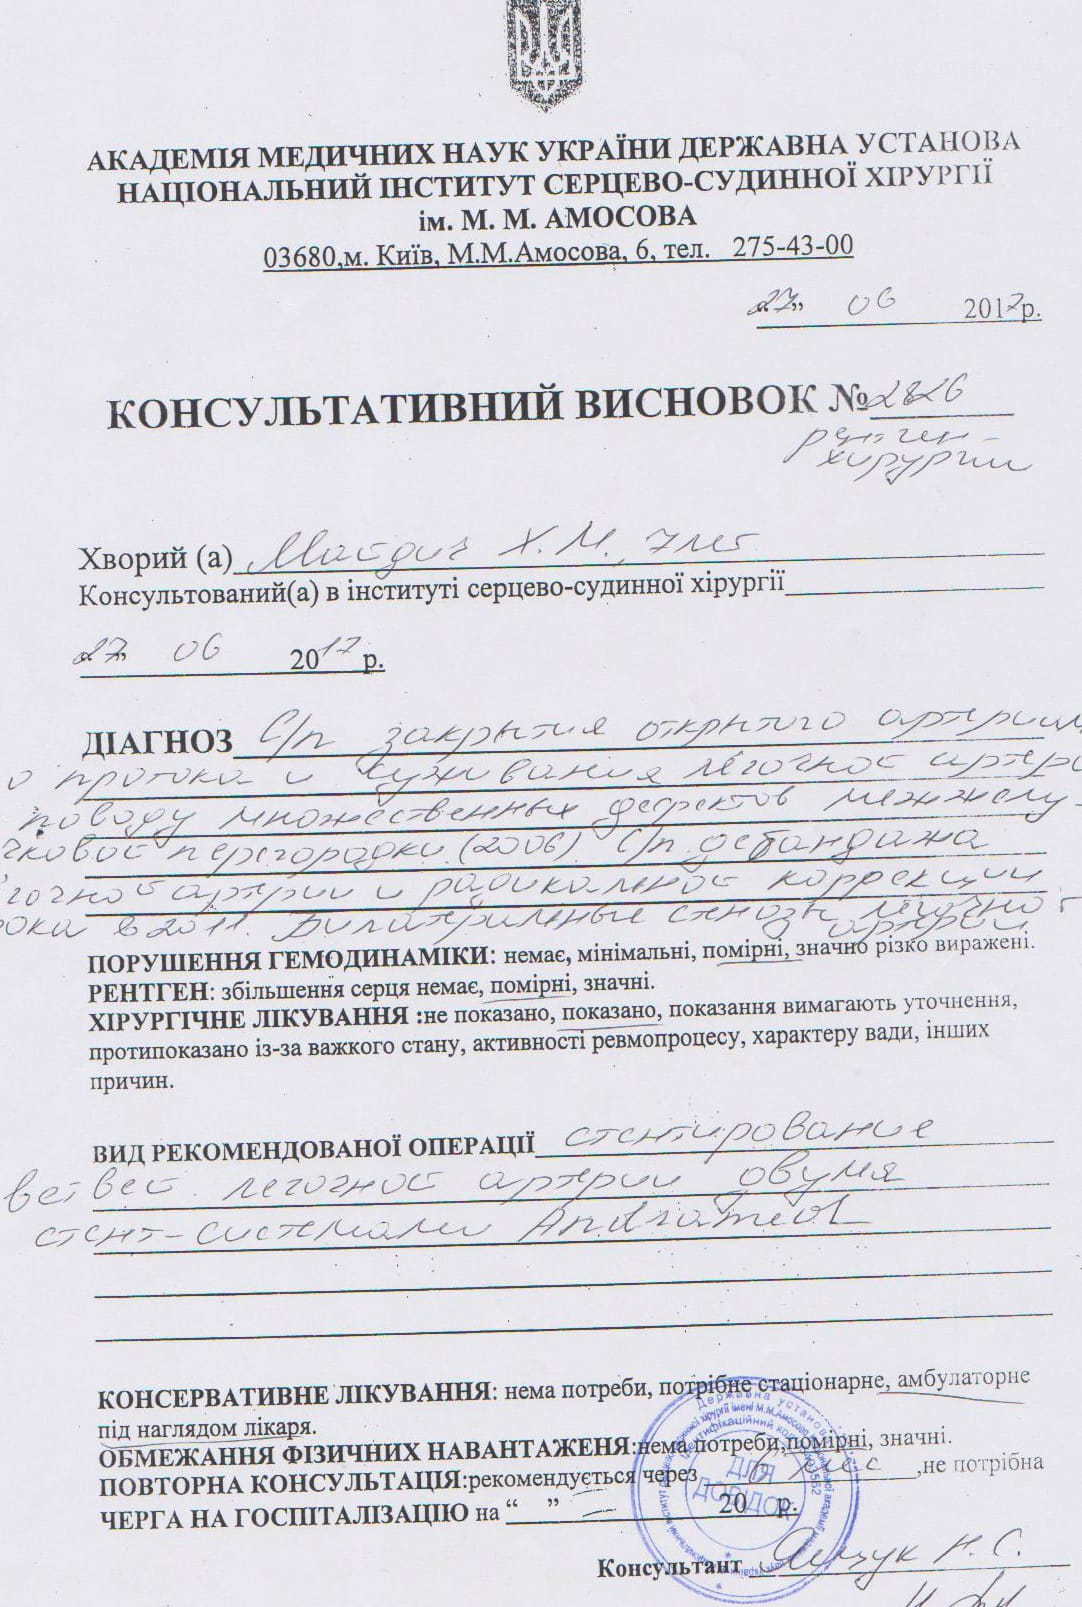 АКАДЕМІЯ МЕДИЧНИХ НАУК УКРАЇНИ ДЕРЖАВНА УСТАНОВА
НАЦІОНАЛЬНИЙ ІНСТИТУТ СЕРЦЕВО-СУДИННОЇ ХІРУРГІЇ
ім. М. М. АМОСОВА
03680,м. Київ, М.М.Амосова, 6, тел. 275-43-00
"27" 06 2017р.
КОНСУЛЬТАТИВНИЙ ВИСНОВОК № 2826
рентген-
хирургии
Хворий (а) Х.М., 7 лет
Консультований(а) в інституті серцево-судинної хірургії
"27" 06 2017 р.
ДІАГНОЗ С/п закрытия открытого артериаль
о протока и суживания лёгочной артери
поводу множественных дефектов межжелу-
чковой перегородки (2006). С/п дебандажа
гочной артерии и радикальной коррекции
рока в 2011. Билатеральные стенозы лёгочной
артерии
ПОРУШЕННЯ ГЕМОДИНАМІКИ: немає, мінімальні, помірні, значно різко виражені.
РЕНТГЕН: збільшення серця немає, помірні, значні.
ХІРУРГІЧНЕ ЛІКУВАННЯ :не показано, показано, показання вимагають уточнення,
протипоказано із-за важкого стану, активності ревмопроцесу, характеру вади, інших
причин.
ВИД РЕКОМЕНДОВАНОЇ ОПЕРАЦІЇ стентирование
ветвей легочной артерии двумя
стент-системами AndraMed
КОНСЕРВАТИВНЕ ЛІКУВАННЯ: нема потреби, потрібне стаціонарне, амбулаторне
під наглядом лікаря.
ОБМЕЖАННЯ ФІЗИЧНИХ НАВАНТАЖЕНЯ:нема потреби,помірні, значні.
ПОВТОРНА КОНСУЛЬТАЦІЯ:рекомендується через 6 мес ,не потрібна
ЧЕРГА НА ГОСПІТАЛІЗАЦІЮ на " " 20 р.
ДЛЯ
ДОВІДОК
Консультант Ящук Н.С.